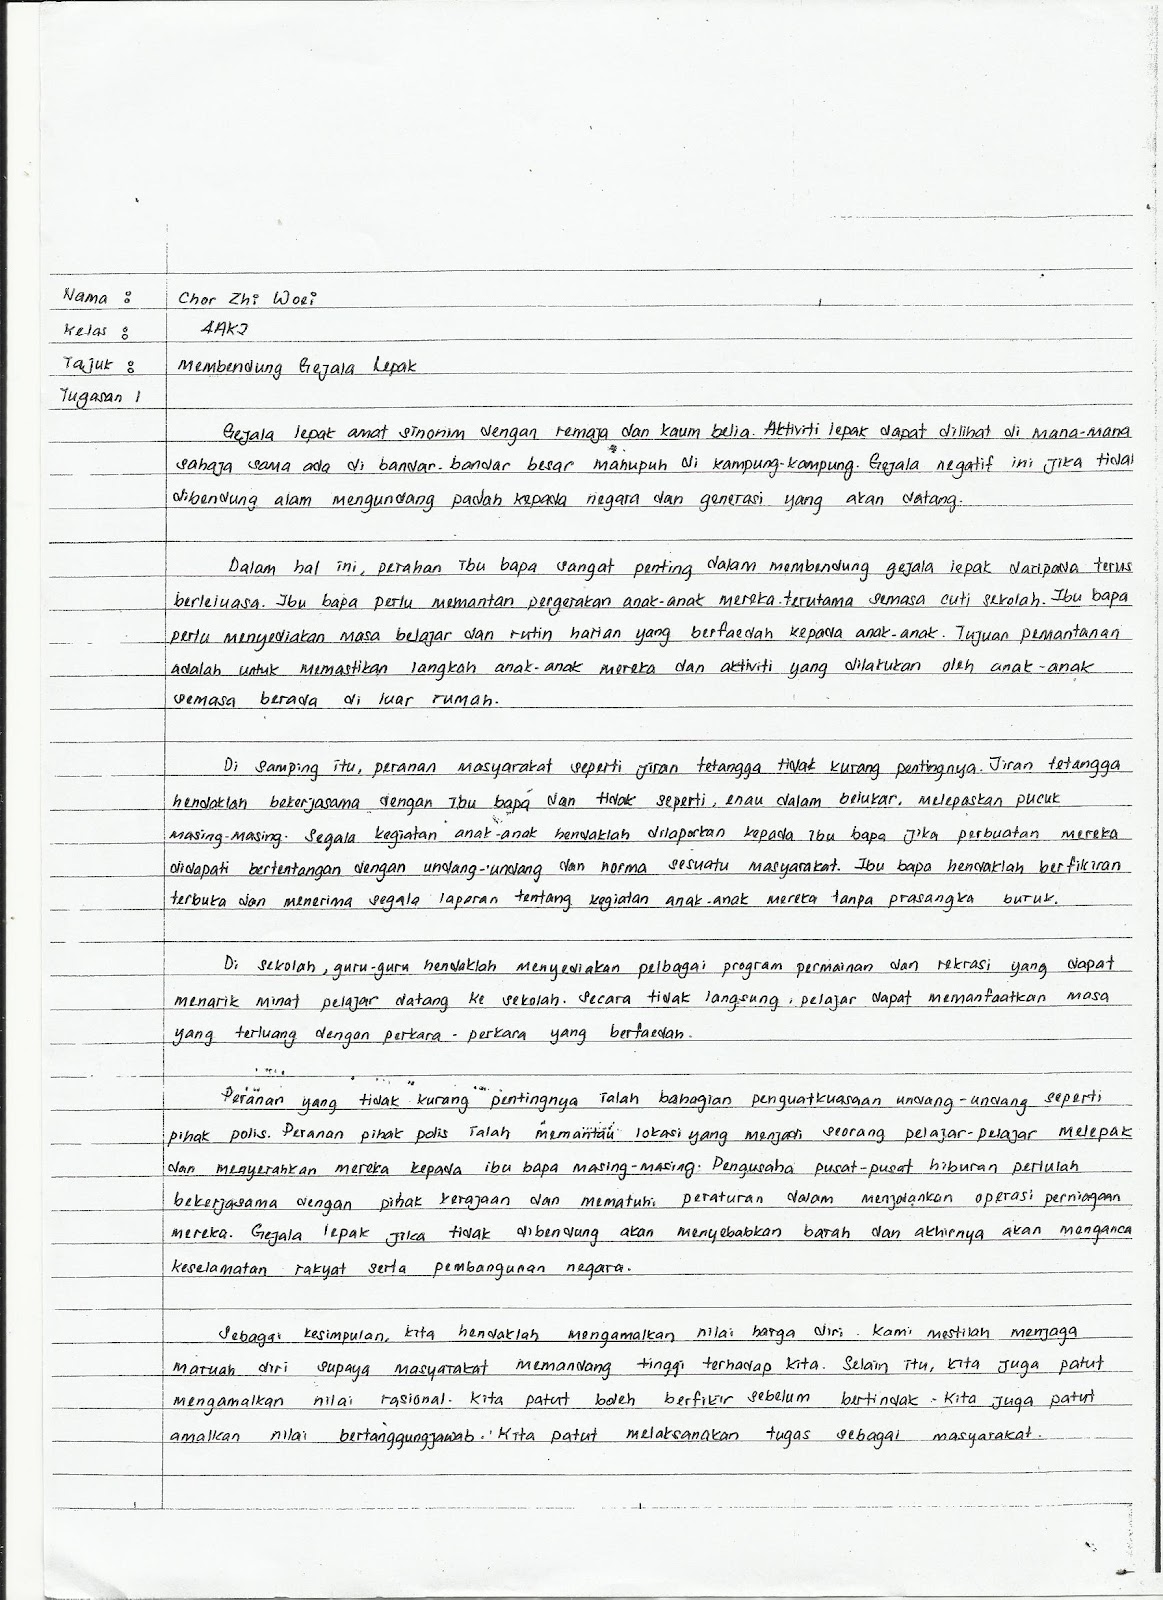 Nama : Chor Zhi Woei
Kelas : 4AK2
Tajuk : Membendung Gejala Lepak
Tugasan 1
Gejala lepak amat sinonim dengan remaja dan kaum belia. Aktiviti lepak dapat dilihat di mana-mana
sahaja sama ada di bandar-bandar besar mahupuh di kampung-kampung. Gejala negatif ini jika tidai
dibendung alam mengundang padah kepada negara dan generasi yang akan datang.
Dalam hal ini, perahan ibu bapa sangat penting dalam membendung gejala lepak daripada terus
berleluasa. Ibu bapa perlu memantan pergerakan anak-anak mereka.terutama semasa cuti sekolah. Ibu bapa
perlu menyediakan masa belajar dan rutin harian yang berfaedah kepada anak-anak. Tujuan pemantanan
adalah untuk memastikan langkah anak-anak mereka dan aktiviti yang dilakukan oleh anak-anak
semasa berada di luar rumah.
Di samping itu, peranan masyarakat seperti jiran tetangga tidak kurang pentingnya. Jiran tetangga
hendaklah bekerjasama dengan ibu bapa dan tidak seperti, enau dalam belukar, melepaskan pucuk
masing-masing. Segala kegiatan anak-anak hendaklah dilaporkan kepada ibu bapa jika perbuatan mereka
didapati bertentangan dengan undang-undang dan norma sesuatu masyarakat. Ibu bapa hendaklah berfikiran
terbuka dan menerima segala laporan tentang kegiatan anak-anak mereka tanpa prasangka buruk.
Di sekolah, guru-guru hendaklah menyediakan pelbagai program permainan dan rekrasi yang dapat
menarik minat pelajar datang ke sekolah. Secara tidak langsung, pelajar dapat memanfaatkan masa
yang terluang dengan perkara-perkara yang berfaedah.
Peranan yang tidak kurang pentingnya ialah bahagian penguatkuasaan undang-undang seperti
pihak polis. Peranan pihak polis ialah memantau lokasi yang menjadi seorang pelajar-pelajar melepak
dan menyerahkan mereka kepada ibu bapa masing-masing. Pengusaha pusat-pusat hiburan perlulah
bekerjasama dengan pihak kerajaan dan mematuhi peraturan dalam menjalankan operasi perniagaan
mereka. Gejala lepak jika tidak dibendung akan menyebabkan barah dan akhirnya akan menganca
keselamatan rakyat serta pembangunan negara.
Sebagai kesimpulan, kita hendaklah mengamalkan nilai harga diri. Kami mestilah menjaga
maruah diri supaya masyarakat memandang tinggi terhadap kita. Selain itu, kita juga patut
mengamalkan nilai rasional. Kita patut boleh berfikir sebelum bertindak. Kita juga patut
amalkan nilai bertanggungjawab. Kita patut melaksanakan tugas sebagai masyarakat.